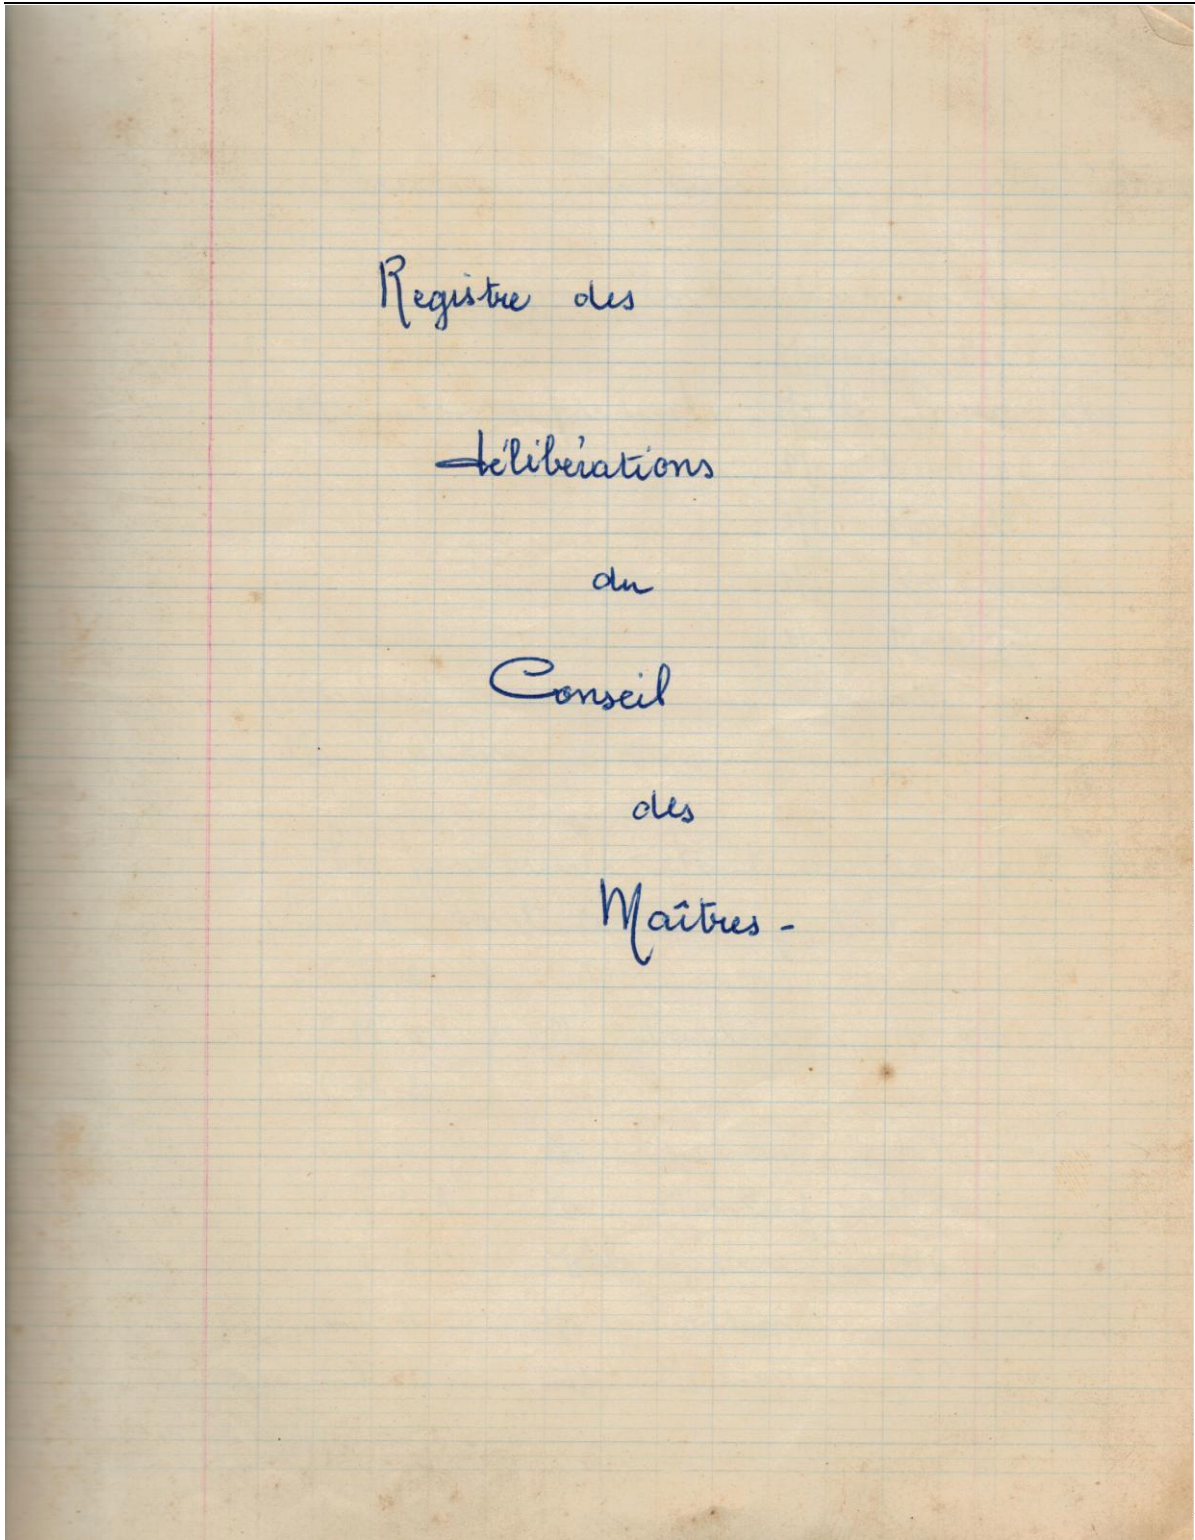 Registre des
délibérations
du
Conseil
des
Maîtres -